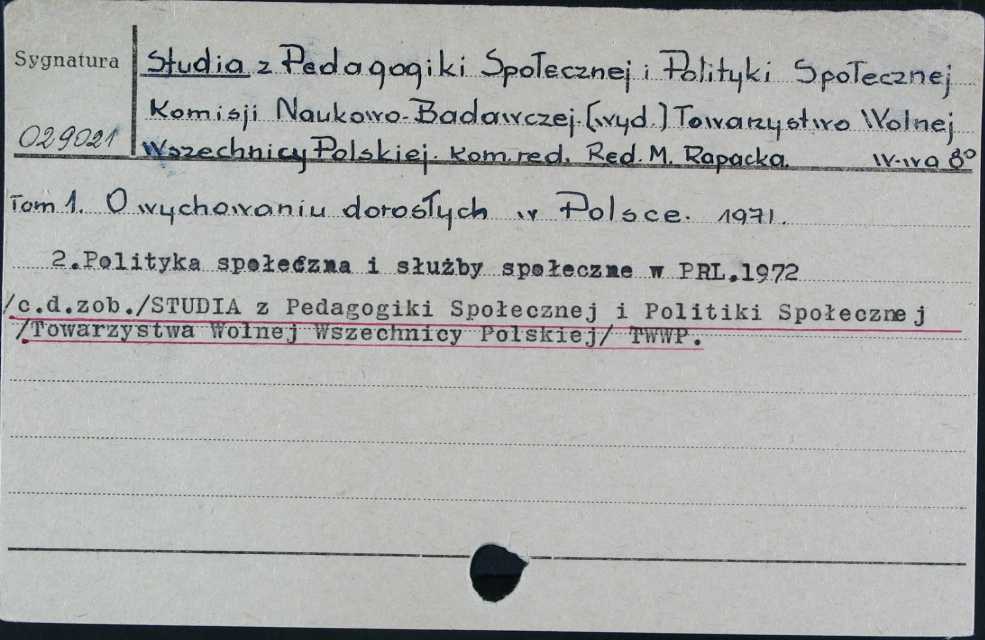 Sygnatura
029021
Studia z Pedagogiki Społecznej i Polityki Społecznej
Komisji Naukowo-Badawczej. [wyd.] Towarzystwo Wolnej
Wszechnicy Polskiej. Kom. red. Red. M. Rapacka. W-wa 8°
Tom 1. O wychowaniu dorosłych w Polsce. 1971.
2.Polityka społeczna i służby społeczne w PRL.1972
/c.d.zob./STUDIA z Pedagogiki Społecznej i Politiki Społecznej
/Towarzystwa Wolnej Wszechnicy Polskiej/ TWWP.